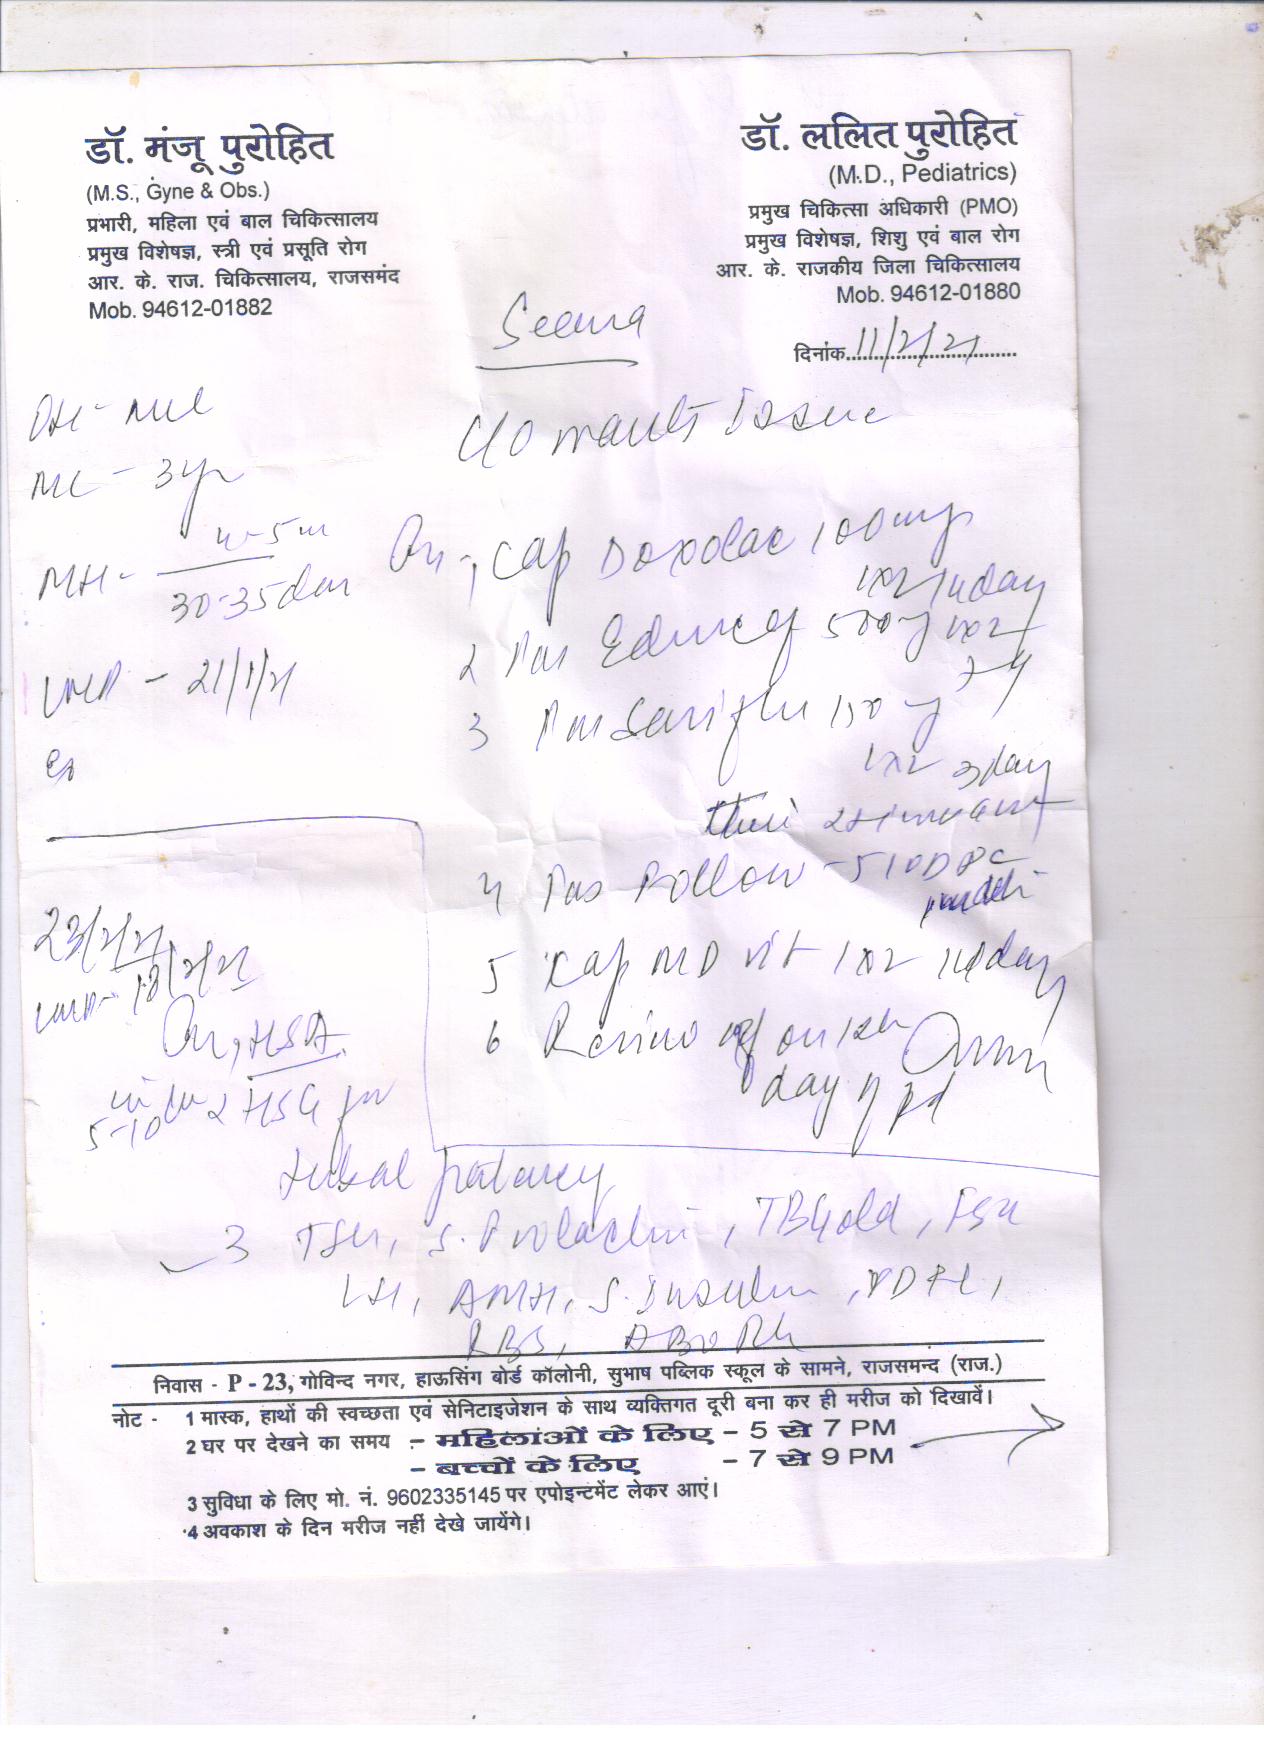 डॉ. मंजू पुरोहित
(M.S., Gyne & Obs.)
प्रभारी, महिला एवं बाल चिकित्सालय
प्रमुख विशेषज्ञ, स्त्री एवं प्रसूति रोग
आर. के. राज. चिकित्सालय, राजसमंद
Mob. 94612-01882
डॉ. ललित पुरोहित
(M.D., Pediatrics)
प्रमुख चिकित्सा अधिकारी (PMO)
प्रमुख विशेषज्ञ, शिशु एवं बाल रोग
आर. के. राजकीय जिला चिकित्सालय
Mob. 94612-01880
दिनांक 11/2/21
Seema
C/O wants Issue
ML - 3yr
MH - 4-5
30-35 day
LMP - 21/1/21
1 Cap 100mg
1x2 14 day
2 500 1x2
3 150
1x2 3day
4
5 Cap MD vit 1x2 14 day
6 Review on 12th
day of
23/2/21
LMP - 18/2/21
HSA
5-10 2 HSG for
tubal patency
3 TSH, S. Prolactin, TB Gold, FSH
LH, AMH, S. Insulin, VDRL,
RBS, ABO Rh
निवास - P - 23, गोविन्द नगर, हाऊसिंग बोर्ड कॉलोनी, सुभाष पब्लिक स्कूल के सामने, राजसमन्द (राज.)
नोट - 1 मास्क, हाथों की स्वच्छता एवं सेनिटाइजेशन के साथ व्यक्तिगत दूरी बना कर ही मरीज को दिखावें।
2 घर पर देखने का समय - महिलांओं के लिए - 5 से 7 PM
- बच्चों के लिए - 7 से 9 PM
3 सुविधा के लिए मो. नं. 9602335145 पर एपोइन्टमेंट लेकर आएं।
4 अवकाश के दिन मरीज नहीं देखे जायेंगे।